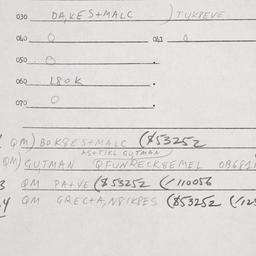 030 DA,KES+MALC ) TUKBEVE
040 0 041 0
050 0 .
060 180K .
070 0 .
QM) BOK8ES+MALC ($53252
AS+TIKL GUTMAN
QM) GUTMAN QFUNRECKSEMEL OB681
3 QM PA+VE ($53252 (/110056
4 QM GREC+A,N8IKBES ($53252 (/12